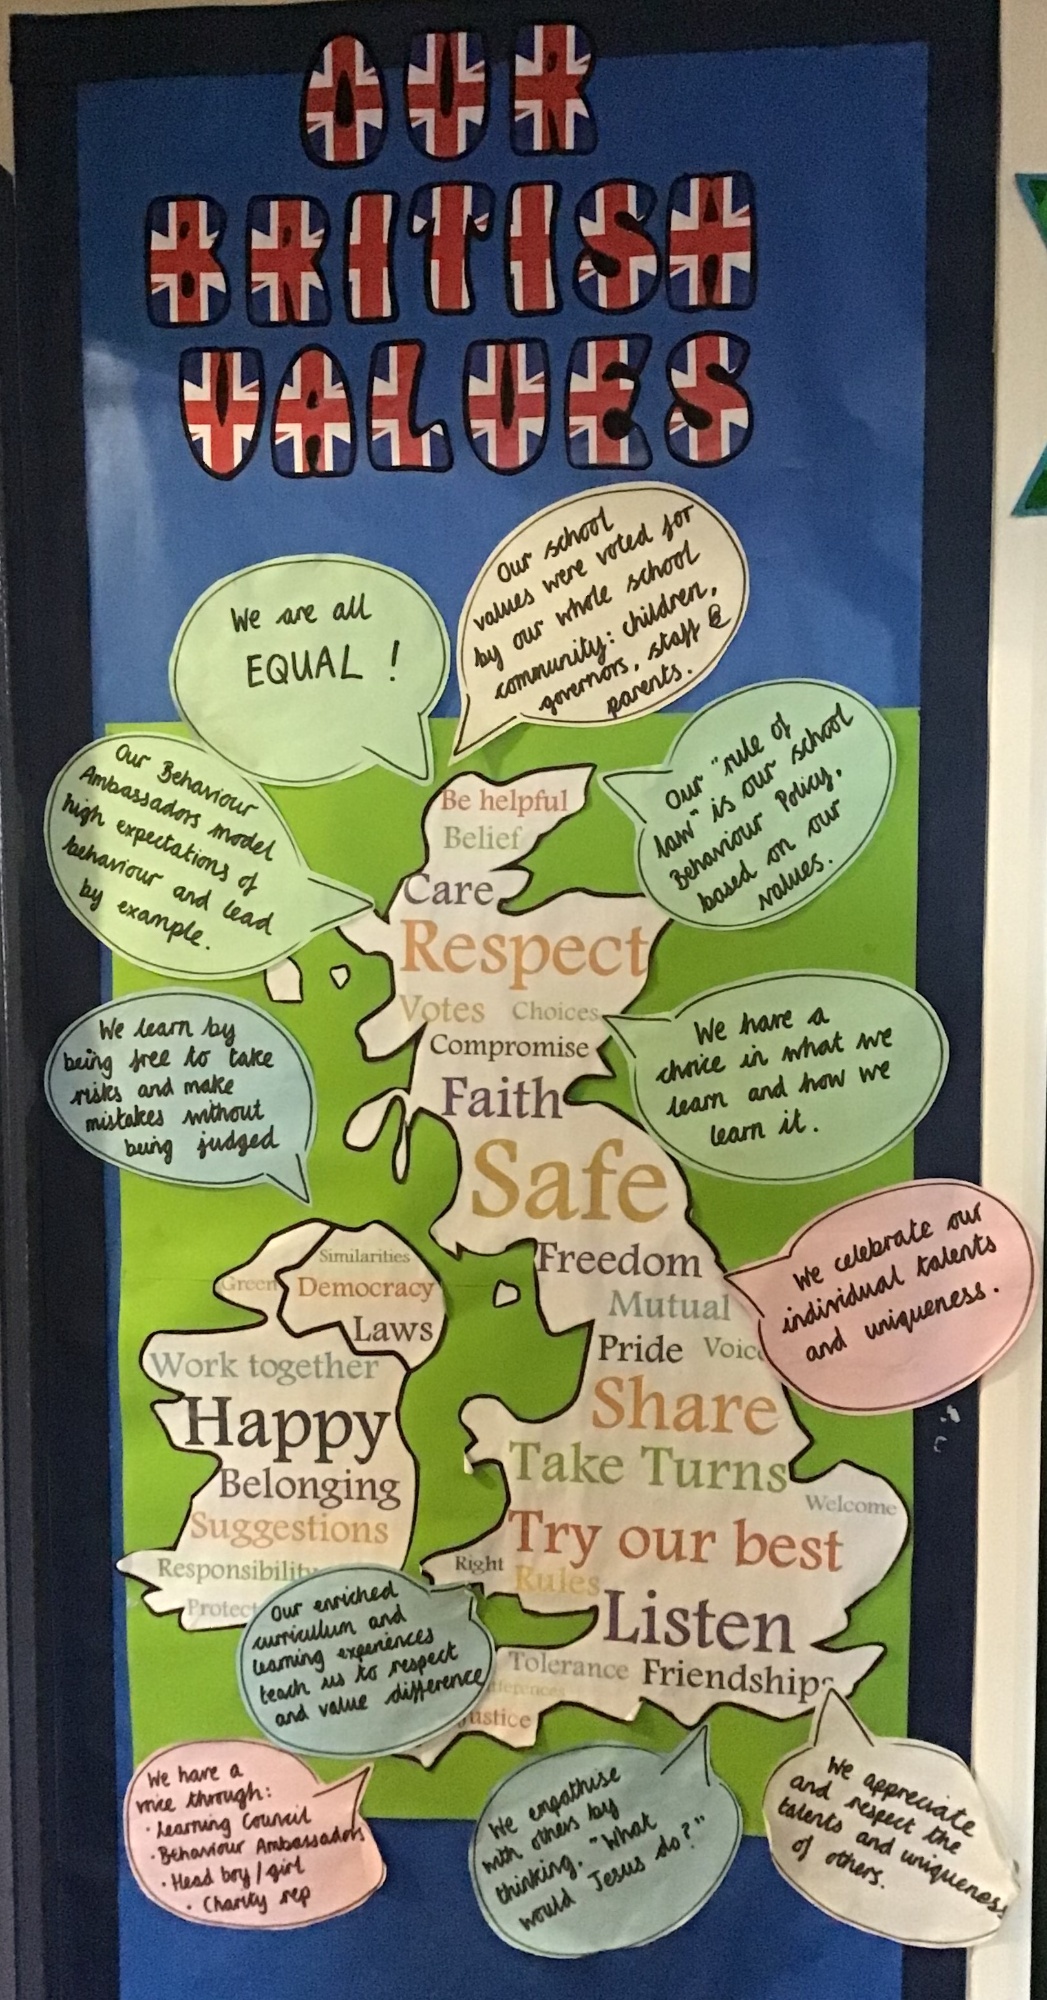 OUR
BRITISH
VALUES
We are all
EQUAL !
Our school
values were voted for
by our whole school
community: children,
governors, staff &
parents.
Our Behaviour
Ambassadors model
high expectations of
behaviour and lead
by example.
Our "rule of
law" is our school
Behaviour Policy,
based on our
values.
We learn by
being free to take
risks and make
mistakes without
being judged
We have a
choice in what we
learn and how we
learn it.
We celebrate our
individual talents
and uniqueness.
Be helpful
Belief
Care
Respect
Votes Choices
Compromise
Faith
Safe
Freedom
Mutual
Pride Voice
Share
Take Turns
Welcome
Try our best
Right
Rules
Listen
Tolerance Friendships
Justice
Similarities
Green Democracy
Laws
Work together
Happy
Belonging
Suggestions
Responsibility
Protect
Our enriched
curriculum and
learning experiences
teach us to respect
and value difference
We have a
voice through:
· Learning Council
· Behaviour Ambassadors
· Head boy/girl
· Charity rep
We empathise
with others by
thinking, "What
would Jesus do?"
We appreciate
and respect the
talents and uniqueness
of others.